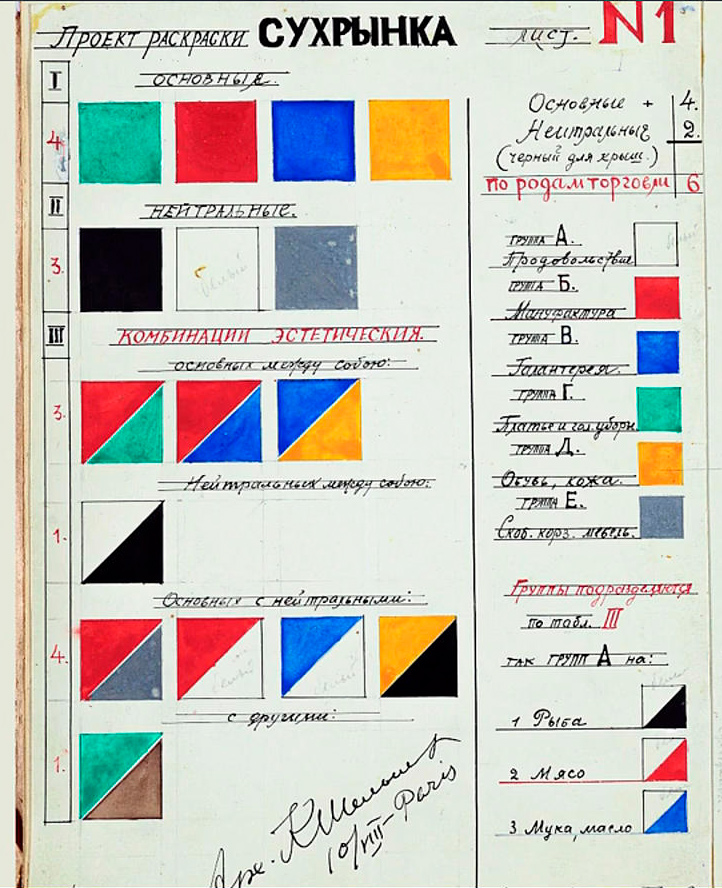 Проект раскраски СУХРЫНКА лист. N1
I
Основныя.
4
II
Нейтральные.
3.
белый
III
Комбинации эстетическия.
основных между собою:
3.
Нейтральных между собою:
1.
Основных с нейтральными:
4.
белый
с другими:
1.
Арх. К
10/VIII - Paris
Основные + 4.
Нейтральные 2.
(черный для крыш.)
по родам торговли 6
группа А.
Продовольствие
белый
группа Б.
Мануфактура
группа В.
Галантерея.
группа Г.
Платье и гол. уборы
группа Д.
Обувь, кожа.
группа Е.
Скоб. корз. мебель.
Группы подразделяются
по табл. III
так групп А на:
1 Рыба
2 Мясо
3 Мука, масло